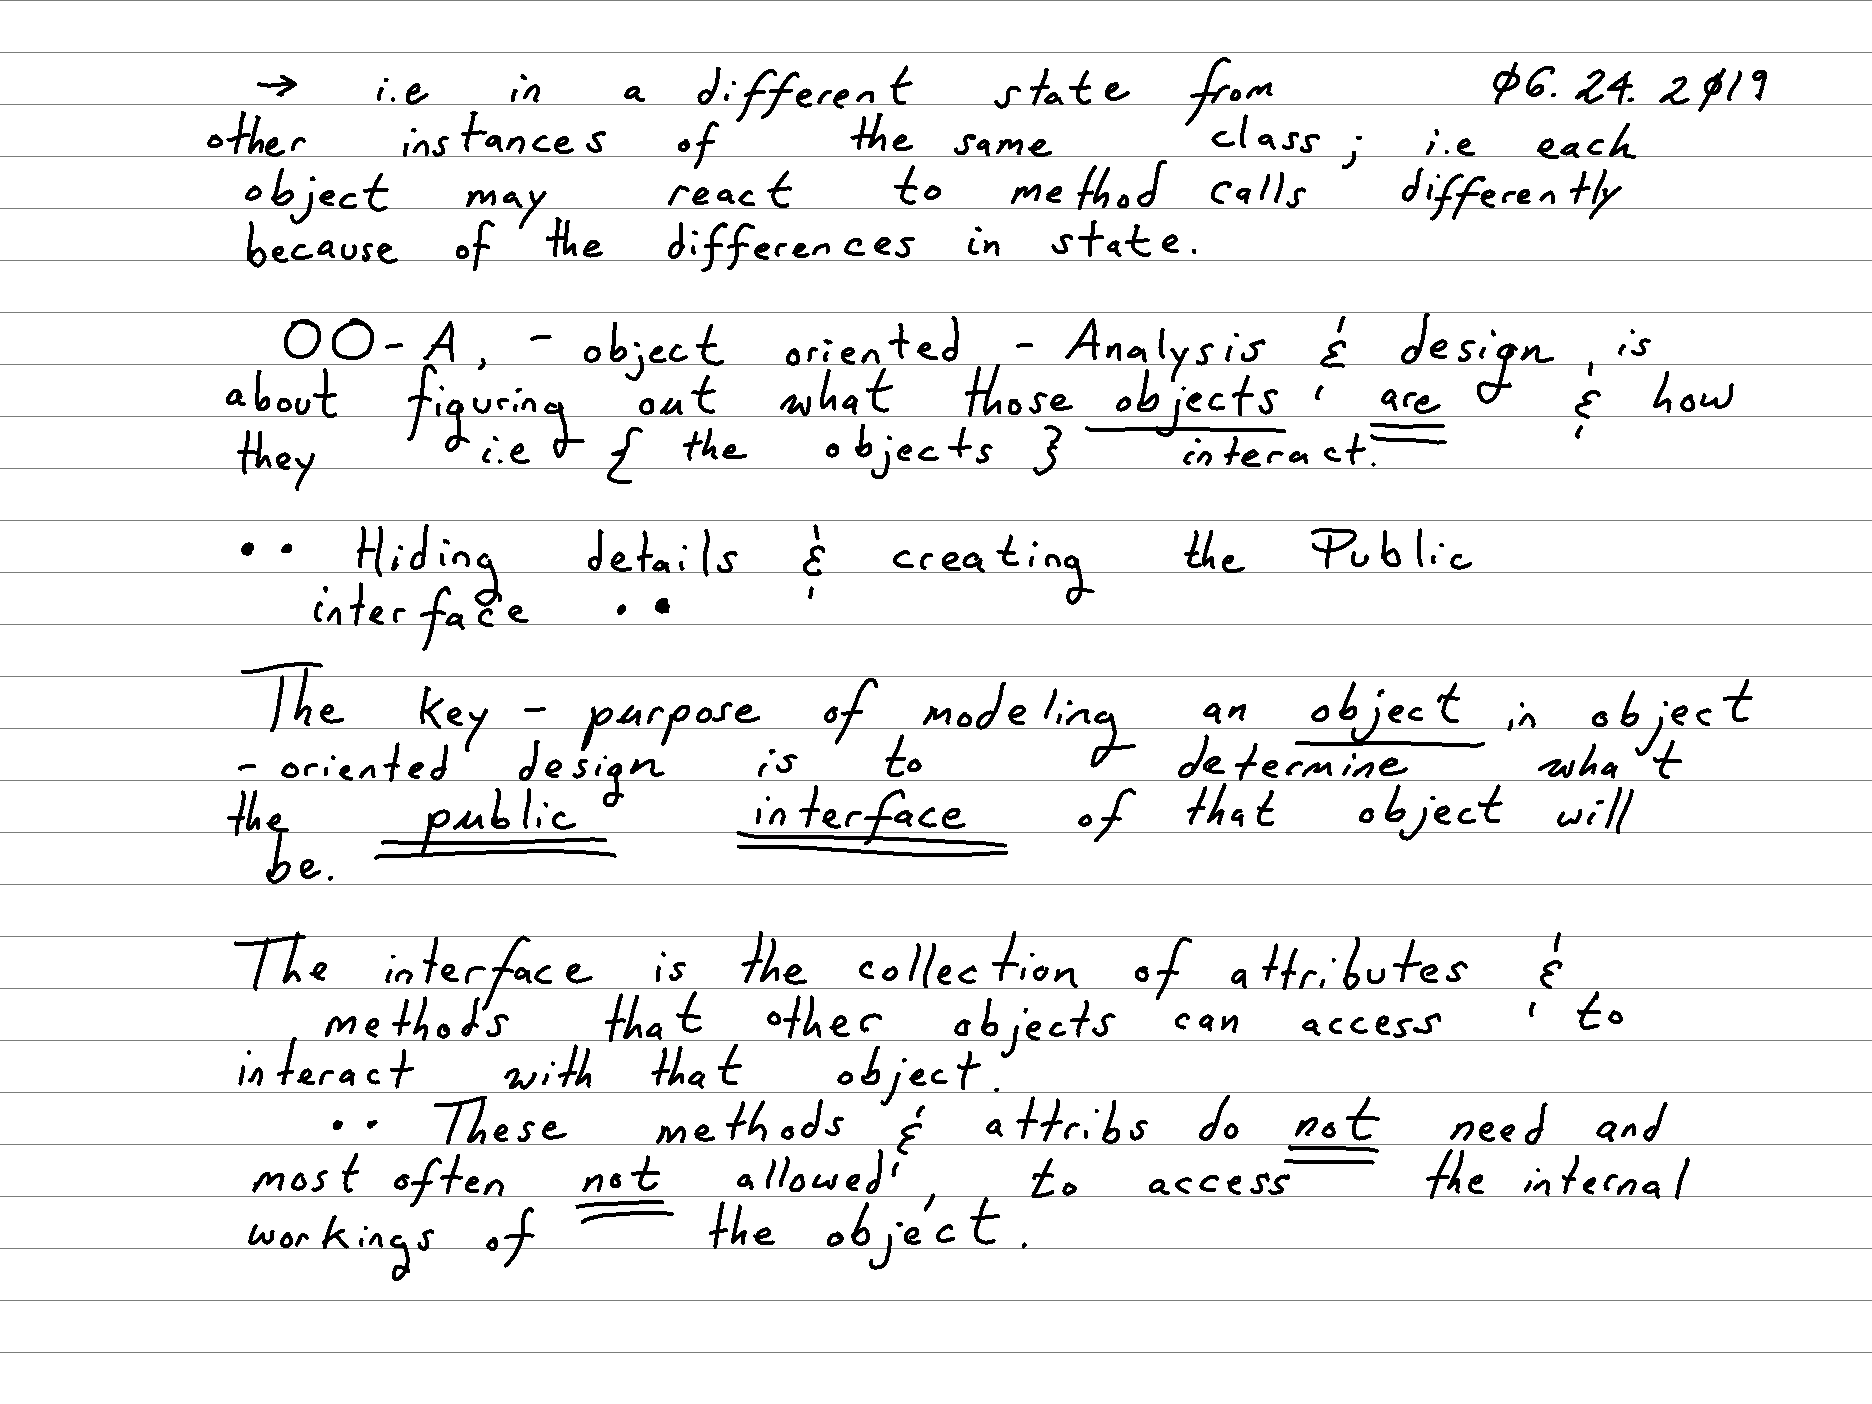 → i.e in a different state from 06.24.2019
other instances of the same class; i.e each
object may react to method calls differently
because of the differences in state.
OO-A, - object oriented - Analysis & design, is
about figuring out what those objects are & how
they i.e { the objects } interact.
•• Hiding details & creating the Public
interface ••
The key - purpose of modeling an object in object
- oriented design is to determine what
the public interface of that object will
be.
The interface is the collection of attributes &
methods that other objects can access to
interact with that object.
•• These methods & attribs do not need and
most often not allowed, to access the internal
workings of the object.